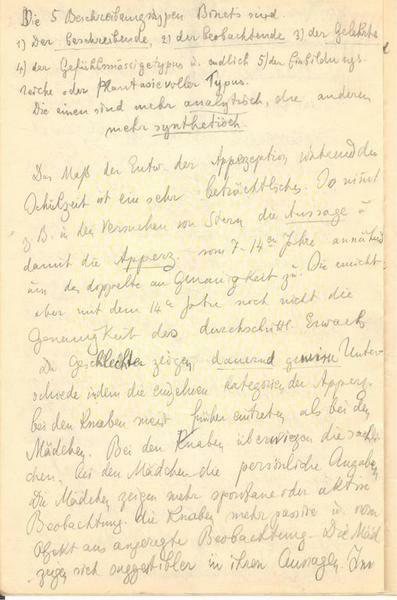 Die 5 Beschreibungstypen Binets sind
1) Der beschreibende, 2) der beobachtende 3) der Gelehrte
4) der Gefühlsmässigetypus u. endlich 5) der Einbildungs-
reiche oder Phantasievoller Typus.
Die einen sind mehr analytisch, die anderen
mehr synthetisch
Das Maß der Entw. der Apperzeption während der
Schulzeit ist ein sehr beträchtliches. So nimt
z B. in den Versuchen von Stern die Aussage u
damit die Apperz. vom 7-14en Jahre annähd
um das doppelte an Genauigkeit zu. Die erreicht
aber mit dem 14n Jahre noch nicht die
Genauigkeit des durchschnittl. Erwachs
Die Geschlechter zeigen dauernd gewisse Unter-
schiede indem die einzelnen Kategorien der Apperz.
bei den Knaben meist früher eintreten als bei den
Mädchen. Bei den Knaben überwiegen die sach-
chen, bei den Mädchen die persönliche Angaben
Die Mädchen zeigen mehr spontane oder aktive
Beobachtung. die Knaben mehr passive u. vom
Objekt aus angeregte Beobachtung. Die Mäd
zeigen sich suggestibler in ihren Aussagen. Im